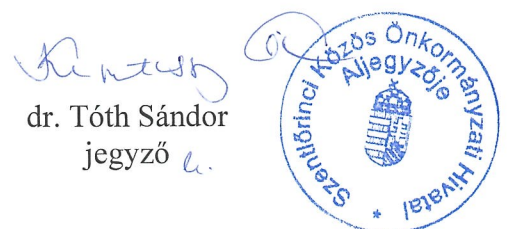 dr. Tóth Sándor
jegyző
Szentlőrinci Közös Önkormányzati Hivatal
Aljegyzője
*